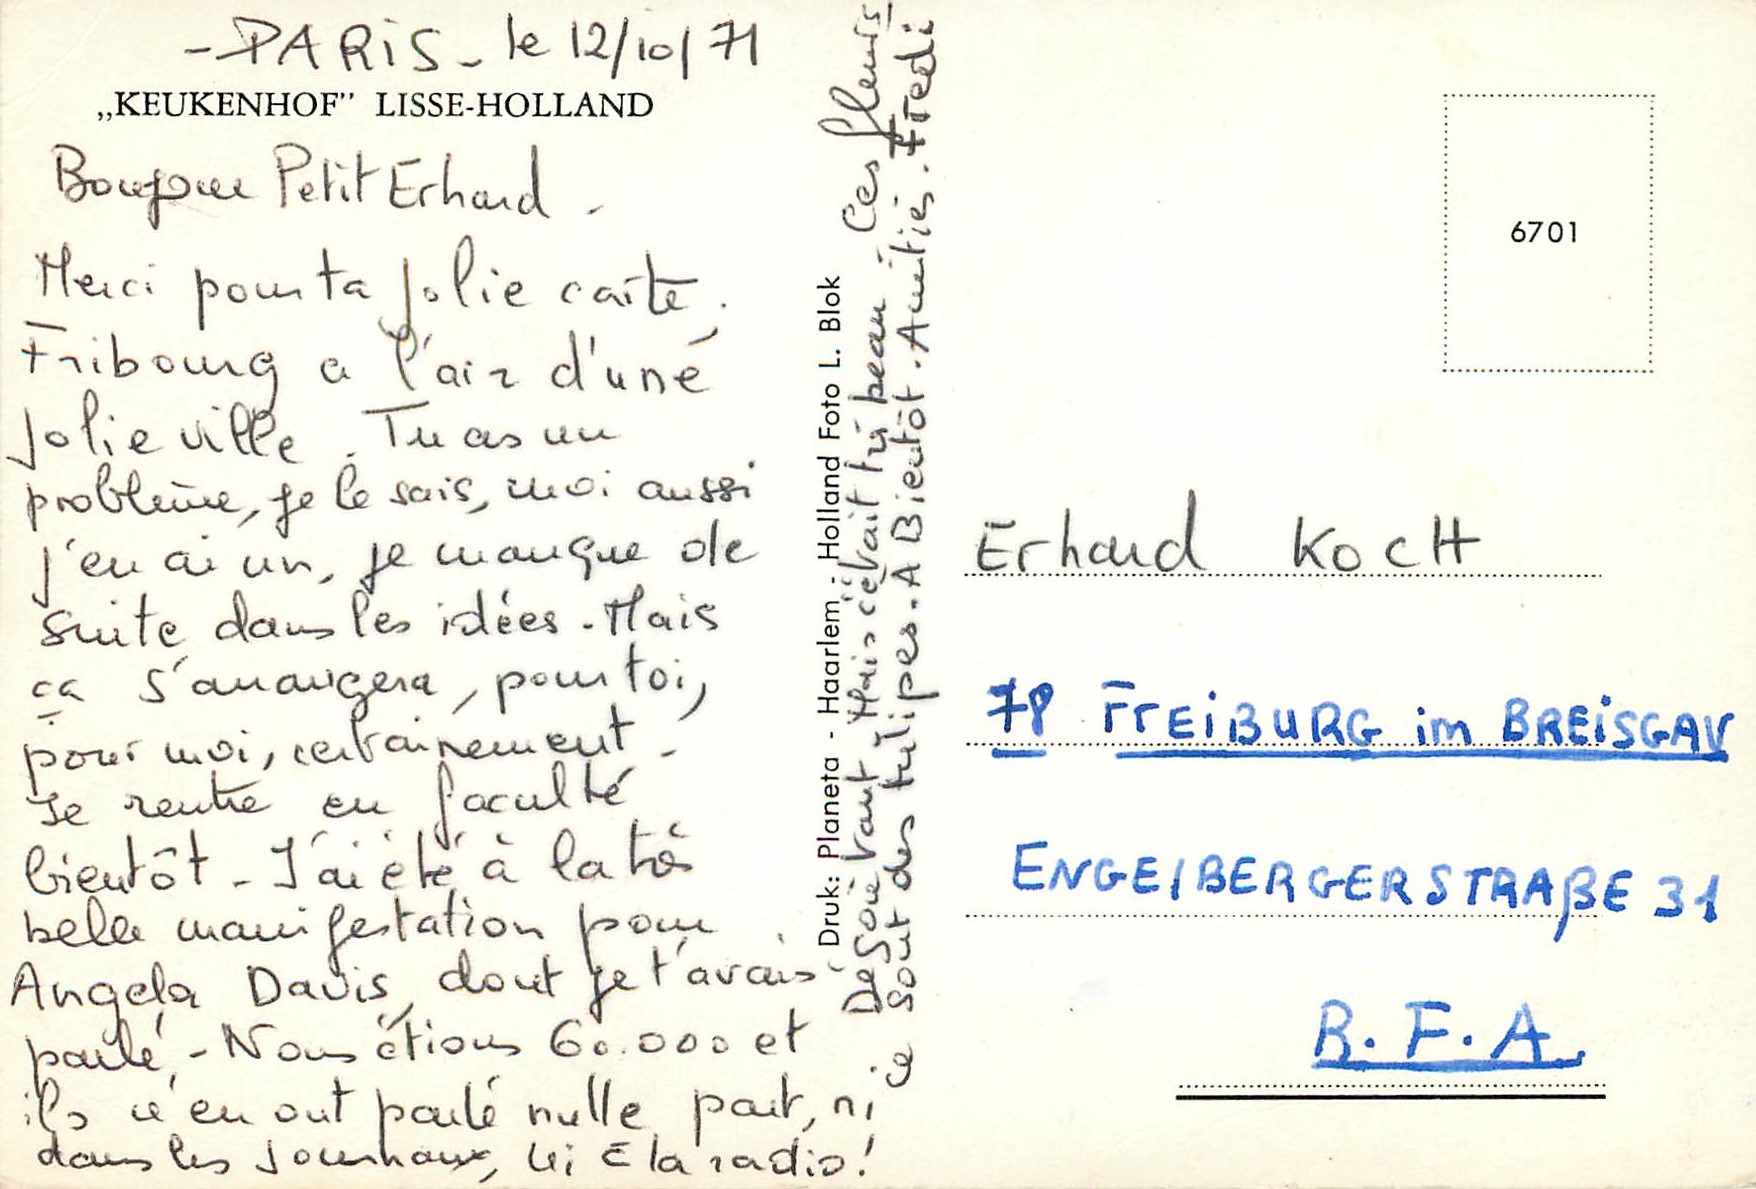 - PARIS - le 12/10/71
„KEUKENHOF” LISSE-HOLLAND
Bonjour Petit Erhard -
Merci pour ta jolie carte.
Fribourg a l'air d'une
jolie ville. Tu as un
problème, je le sais, moi aussi
j'en ai un, je manque de
suite dans les idées. Mais
ça s'arrangera, pour toi,
pour moi, certainement -
Je rentre en faculté
bientôt - J'ai été à la très
belle manifestation pour
Angela Davis, dont je t'avais
parlé, - Nous étions 60.000 et
ils n'en ont parlé nulle part, ni
dans les journaux, ni à la radio!
Druk: Planeta - Haarlem - Holland Foto L. Blok
Mais c'était très beau. Ces fleurs
ce sont des tulipes. A Bientôt. Amitiés. Fredi
6701
Erhard KocH
78 FREiBURG im BREiSGAU
ENGELBERGERSTRAßE 31
R.F.A.